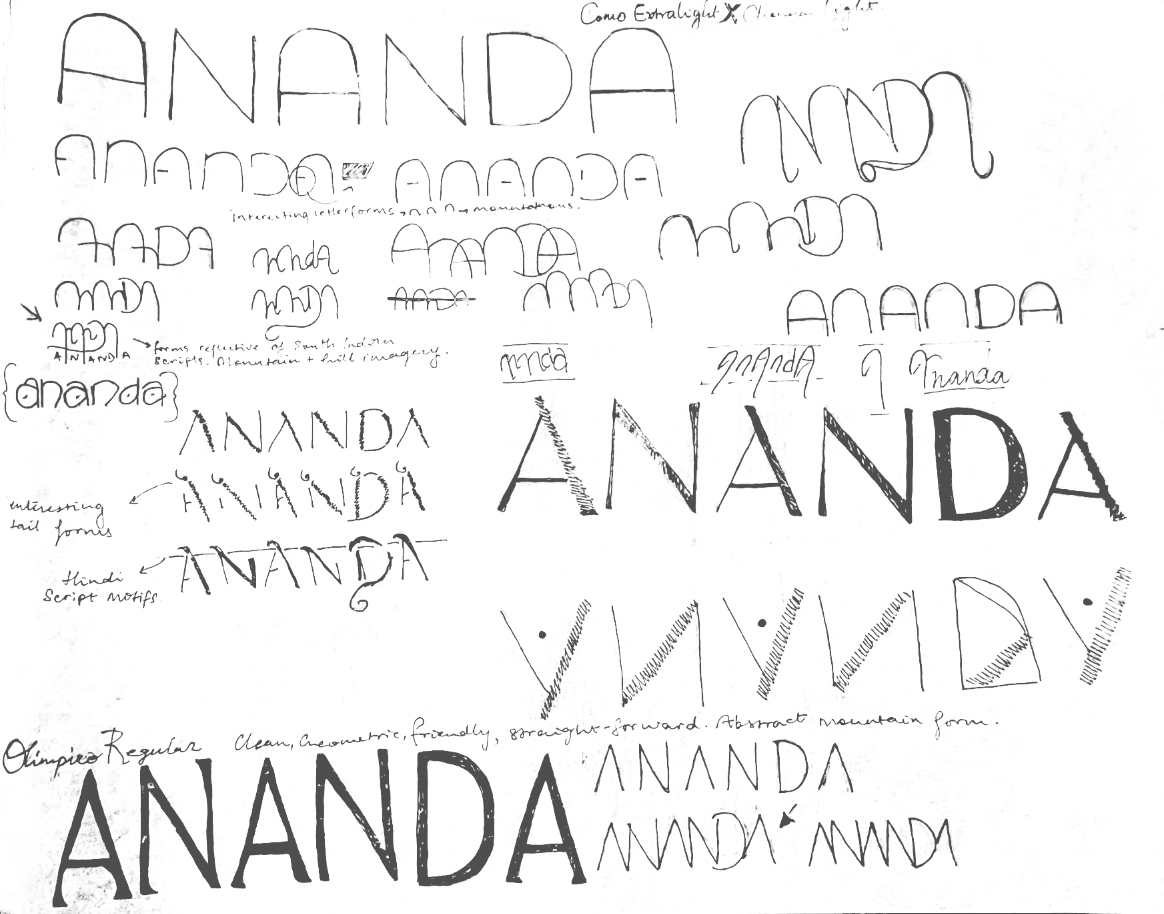 Como Extralight X
ANANDA
ANANDA
ANANDA
Interesting letterforms → n n n → mountainous.
ANANDA
ANANDA
ANANDA
forms reflective of South Indian
scripts. Mountain + hill imagery.
{ananda}
Ananda
ANANDA
ANANDA
ANANDA
interesting
tail forms
ANANDA
Hindi
Script Motifs
ANANDA
Olimpico Regular Clean, Geometric, friendly, straight-forward. Abstract mountain form.
ANANDA
ANANDA
ANANDA
ANANDA